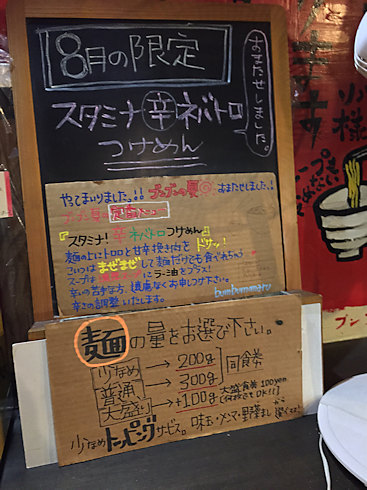 8月の限定
おまたせしました。
スタミナ辛ネバトロ
つけめん
やってまいりました!! ブンブンの夏 おまたせしました!
『スタミナ!辛ネバトロつけめん』
麺の上にトロロと甘辛挽き肉を
ドサッ!
こいつはまぜまぜして麺だけでも食べれちゃう
スープは ラー油をプラス!
辛いの苦手な方、遠慮なくお申しつけ下さい。
辛さの調整いたします。
bunbunmaru
麺の量をお選び下さい。
少なめ → 200g
普通 → 300g
同食券
大盛り → +100g
大盛食券 100yen
少なめトッピングサービス。味玉・メンマ・野菜まし
から
選べます
ブン